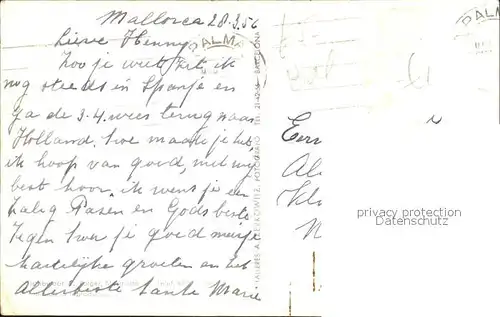 Mallorca 28.3.56
Lieve Henny
PALMA
PALM
Zoo je weet zit ik
nog steeds in Spanje en
ga de 3-4. weer terug naar
Holland. hoe maak je het
ik hoop van goed, met mij
best hoor. ik wens je een
Zalig Pasen en Gods beste
Zegen hoor je goed meisje
hartelijke groeten en het
allerbeste tante Marie
TALLERES A. ZERKOWITZ. FOTOGRAFO BARCELONA
Al
N
privacy protection
Datenschutz